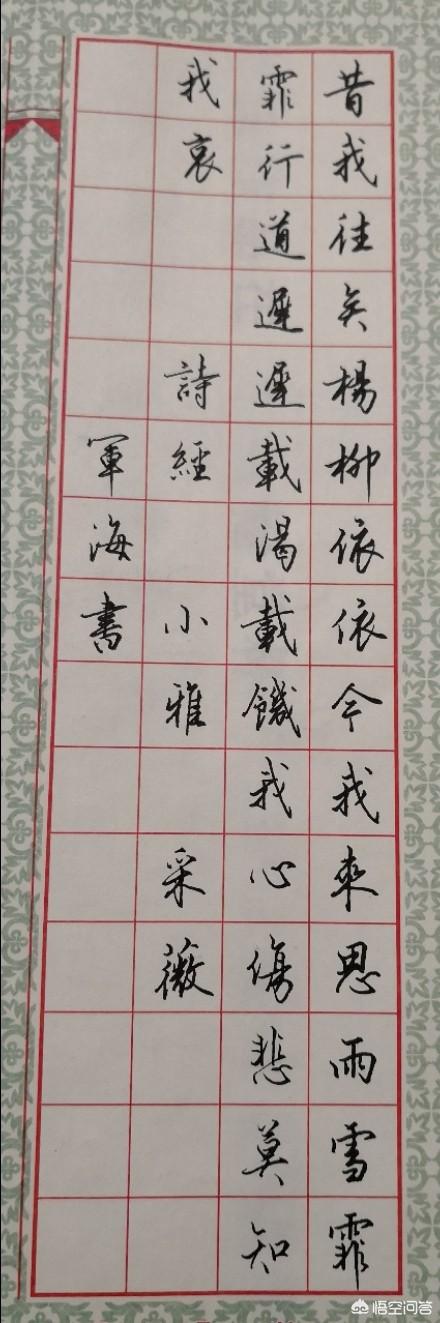 昔我往矣楊柳依依今我來思雨雪霏
霏行道遲遲載渴載饑我心傷悲莫知
我哀 詩經 小雅 采薇
軍海書
悟空问答